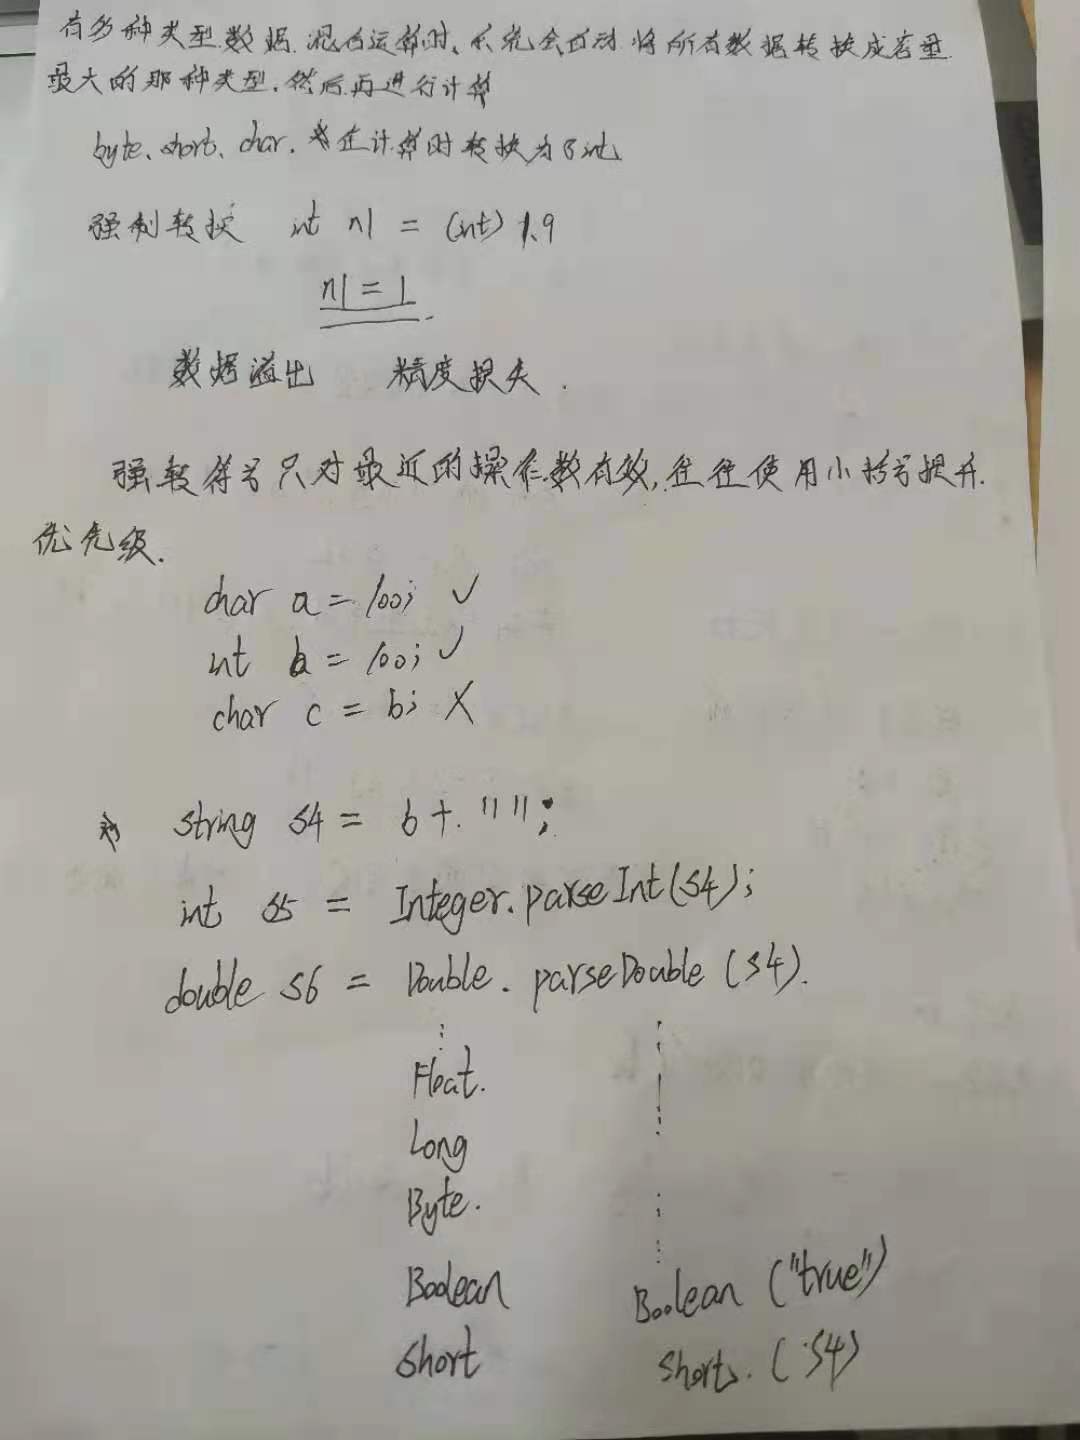 有多种类型数据混合运算时、系统会自动将所有数据转换成容量
最大的那种类型.然后再进行计算
byte、short、char. 在计算时转换为了int
强制转换 int n1 = (int) 1.9
n1 = 1
数据溢出 精度损失.
强转符号只对最近的操作数有效,往往使用小括号提升
优先级.
char a = 100; ✓
int b = 100; ✓
char c = b; X
string s4 = b + "";
int s5 = Integer.parseInt(s4);
double s6 = Double.parseDouble(s4).
Float.
Long
Byte.
Boolean Boolean ("true")
short short. (s4)